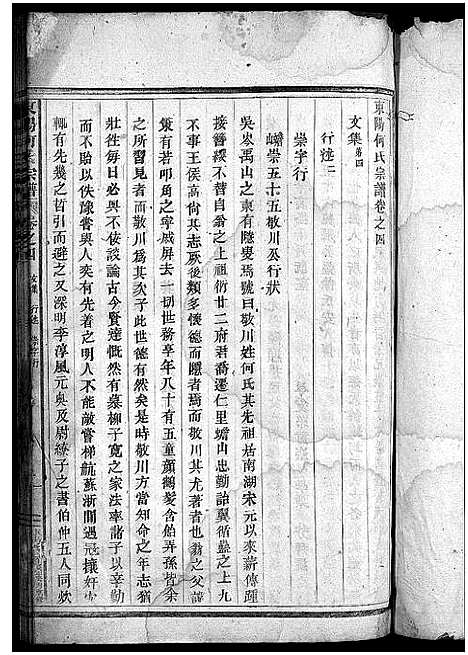 東陽何氏宗譜卷之四
文集第四
行述二
崇字行
蟾崇五十五敬川公行狀
吳崇禹山之東有隱叟焉號曰敬川姓何氏其先祖居南湖宋元以來薪傳踵
接簪纓不替自翁之上祖衍廿二府君喬遷仁里蟾山忠勤詒翼循蠱之上九
不事王侯高尚其志厥後類多懷德而隱者焉而敬川其尤著者也翁之父諱
策有若叩角之寧戚屏去一切世務享年八十有五童顏鶴髮含飴弄孫皆余
之所習見者敬川為其次子此世德有然矣是時敬川方當知命之年志猶
壯往每日必與不佞談論古今賢達慨然有慕柳子寬之家法率諸子以辛勤
而不貽以佚豫嘗與人奕有先着之明人不能敵嘗梯航蘇浙間遇冠攘奸宄
輒有先幾之哲引而避之又深明李淳風元奥及尉繚子之書伯仲五人同炊
東陽何氏宗譜 卷之四 文集 行述 崇字行